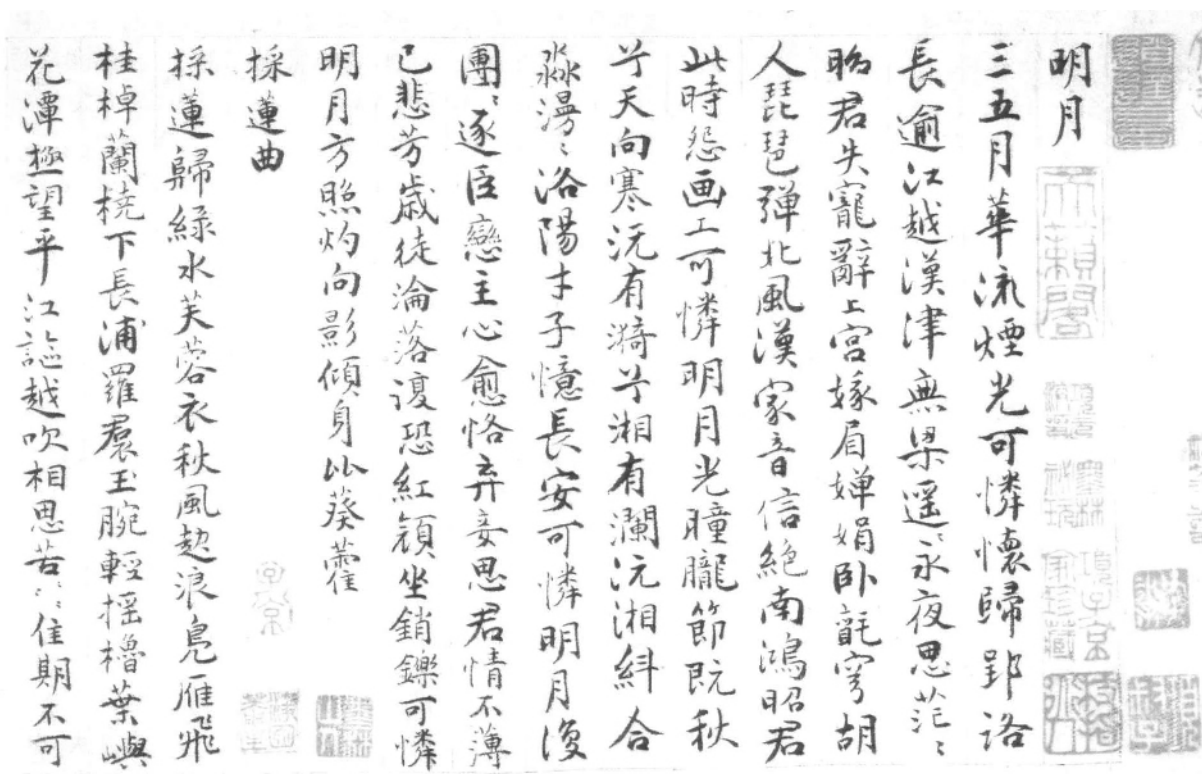 明月
三五月華流煙光可憐懷歸郢路
長逾江越漢津無梁遥〻永夜思茫〻
昭君失寵辭上宮嫁眉嬋娟卧氈穹胡
人琵琶彈北風漢家音信絶南鴻昭君
此時怨画工可憐明月光朣朧節既秋
兮天向寒沅有漪兮湘有瀾沅湘糾合
淼漫〻洛陽才子憶長安可憐明月復
團〻逐臣戀主心愈恪弃妾思君情不薄
已悲芳歲徒淪落復恐紅顔坐銷鑠可憐
明月方照灼向影傾身比葵藿
採蓮曲
採蓮歸緑水芙蓉衣秋風起浪鳧雁飛
桂棹蘭橈下長浦羅裠玉腕輕揺櫓葉嶼
花潭極望平江謳越吹相思苦〻〻佳期不可
天籟閣
子京